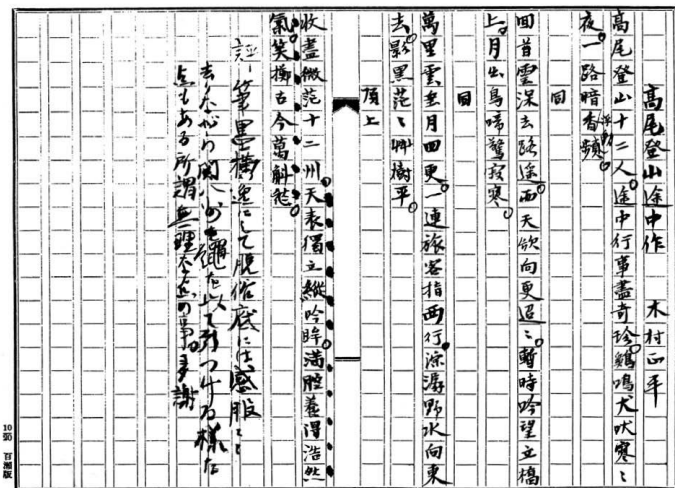 高尾登山途中作　木村正平
高尾登山十二人。途中行事盡奇珍。鷄鳴犬吠寒々
夜。一路暗香浮動頻。
同
回首雲深去路遙。西天欲向更迢々。暫時吟望立橋
上。月出鳥啼驚寂寒。
同
萬里雲無月四更。一連旅客指西行。淙潺野水向東
去。影黒茫々艸樹平。
頂上
收盡微茫十二州。天表獨立縱吟眸。滿腔養得浩然
氣。笑擲古今萬斛愁。
評、筆墨橫逸にして脱俗底には感服しま
去りながら間々縄を以て引つける様な
点もある所謂無理な点の事。多謝
10 20 百瀬版